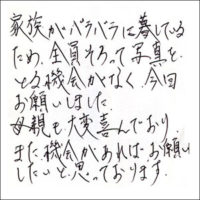 家族がバラバラに暮している
ため、全員そろって写真を
とる機会がなく、今回
お願いしました。
母親も大変喜んでおり、
また機会があればお願い
したいと思っております。